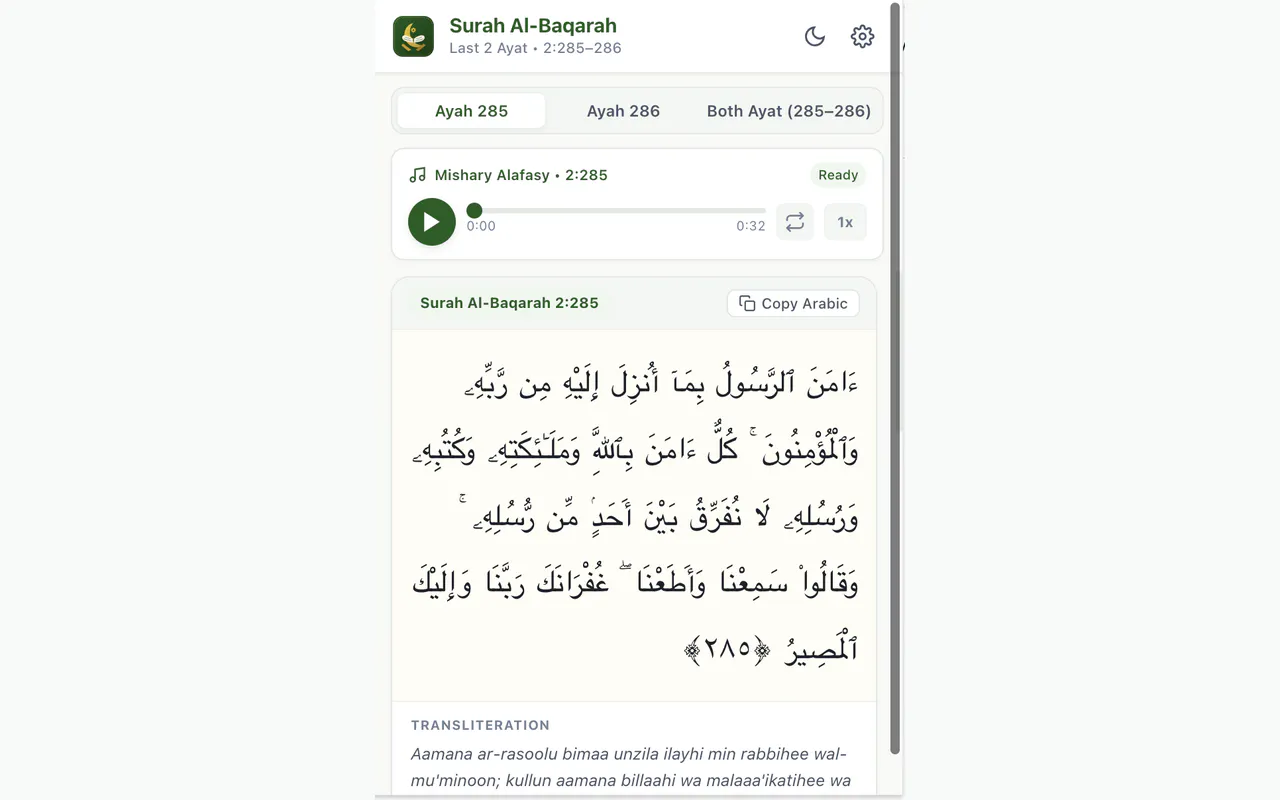 Surah Al-Baqarah
Last 2 Ayat • 2:285–286
Ayah 285 Ayah 286 Both Ayat (285–286)
Mishary Alafasy • 2:285 Ready
0:00 0:32 1x
Surah Al-Baqarah 2:285 Copy Arabic
ءَامَنَ ٱلرَّسُولُ بِمَآ أُنزِلَ إِلَيْهِ مِن رَّبِّهِۦ
وَٱلْمُؤْمِنُونَ ۚ كُلٌّ ءَامَنَ بِٱللَّهِ وَمَلَـٰٓئِكَتِهِۦ وَكُتُبِهِۦ
وَرُسُلِهِۦ لَا نُفَرِّقُ بَيْنَ أَحَدٍۢ مِّن رُّسُلِهِۦ ۚ
وَقَالُوا۟ سَمِعْنَا وَأَطَعْنَا ۖ غُفْرَانَكَ رَبَّنَا وَإِلَيْكَ
ٱلْمَصِيرُ ﴿٢٨٥﴾
TRANSLITERATION
Aamana ar-rasoolu bimaa unzila ilayhi min rabbihee wal-
mu'minoon; kullun aamana billaahi wa malaaa'ikatihee wa